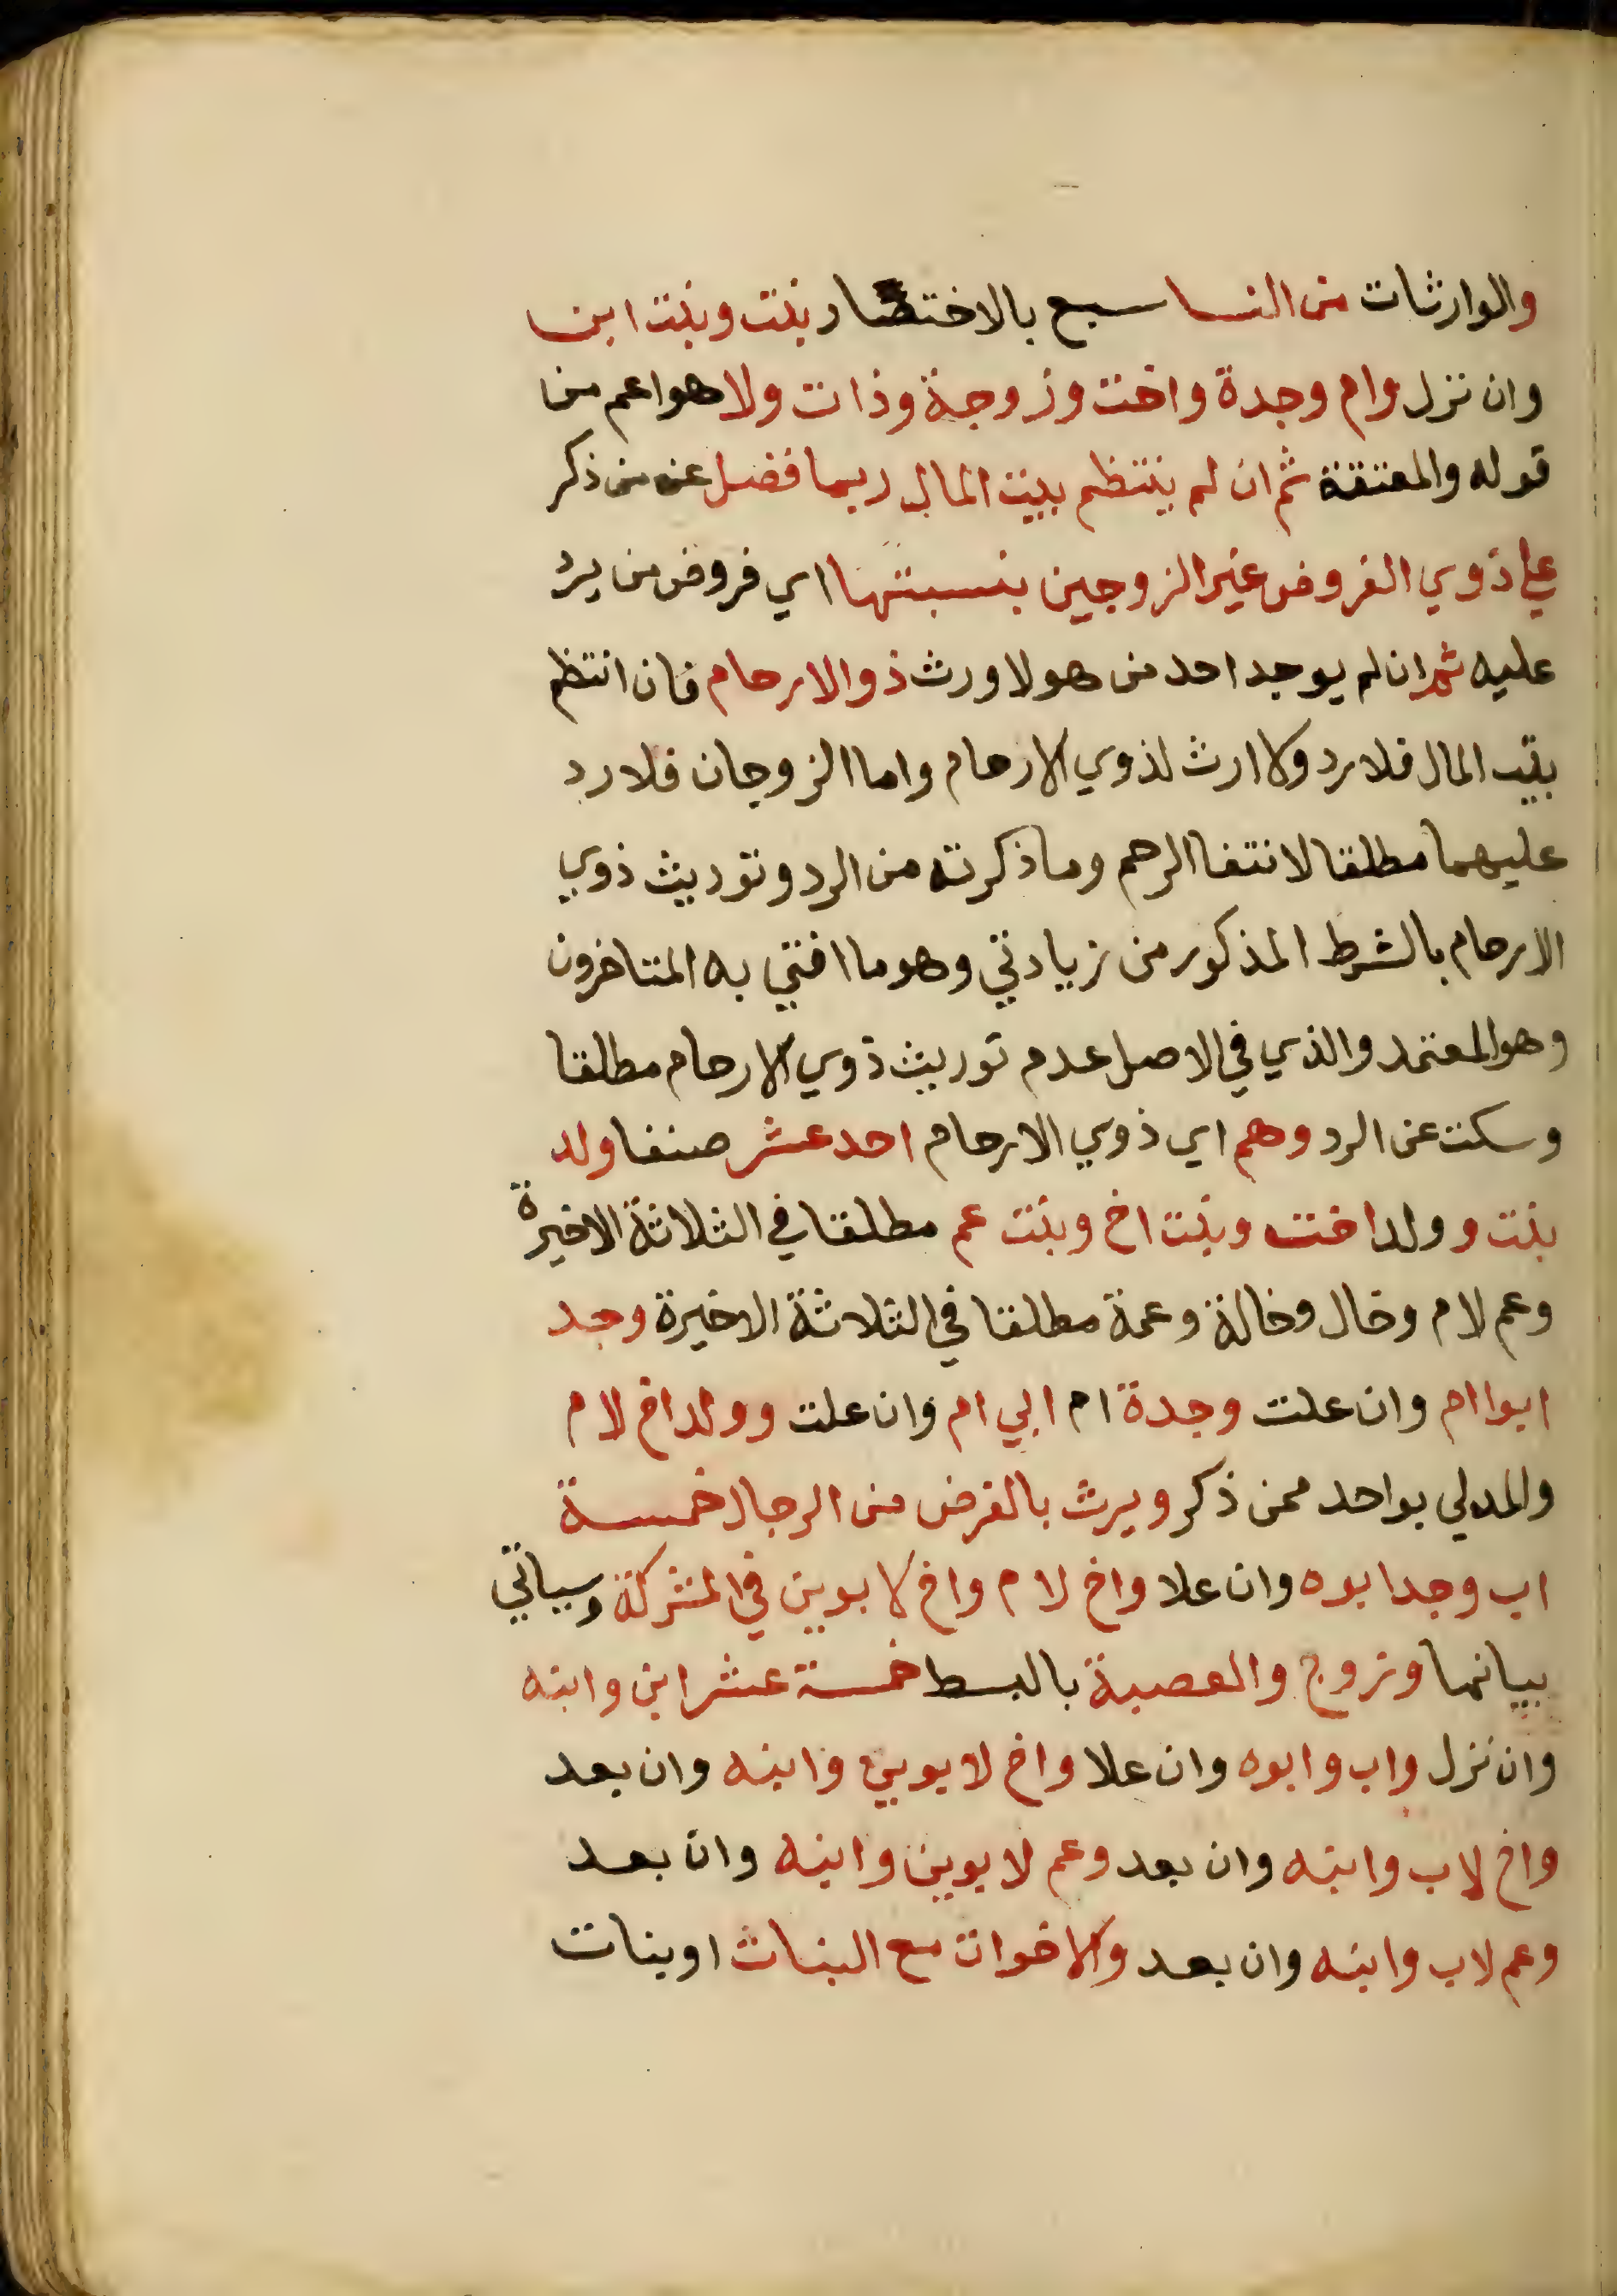 والوارثات من النسا سبع بالاختصار بنت وبنت ابن
وان نزل وام وجدة واخت وزوجة وذات ولا هو اعم من
قوله والمعتقة ثم ان لم ينتظم بيت المال رد ما فضل عن من ذكر
علي ذوي الفروض غير الزوجين بنسبتها اي فروض من يرد
عليه ثم ان لم يوجد احد من هولا ورث ذوا الارحام فان انتظم
بيت المال فلا رد ولا ارث لذوي الارحام واما الزوجان فلا رد
عليهما مطلقا لانتفا الرحم وما ذكرته من الرد وتوريث ذوي
الارحام بالشرط المذكور من زيادتي وهو ما افتي به المتاخرون
وهو المعتمد والذي في الاصل عدم توريث ذوي الارحام مطلقا
وسكت عن الرد وهم اي ذوي الارحام احد عشر صنفا ولد
بنت وولد اخت وبنت اخ وبنت عم مطلقا في الثلاثة الاخيرة
وعم لام وخال وخالة وعمة مطلقا في الثلاثة الاخيرة وجد
ابوا ام وان علت وجدة ام ابي ام وان علت وولد اخ لام
والمدلي بواحد ممن ذكر ويرث بالفرض من الرجال خمسة
اب وجد ابوه وان علا واخ لام واخ لابوين في المشركة وسياتي
بيانها وزوج والعصبة بالبسط خمسة عشر ابن وابنه
وان نزل واب وابوه وان علا واخ لابوين وابنه وان بعد
واخ لاب وابنه وان بعد وعم لابوين وابنه وان بعد
وعم لاب وابنه وان بعد والاخوات مع البنات او بنات